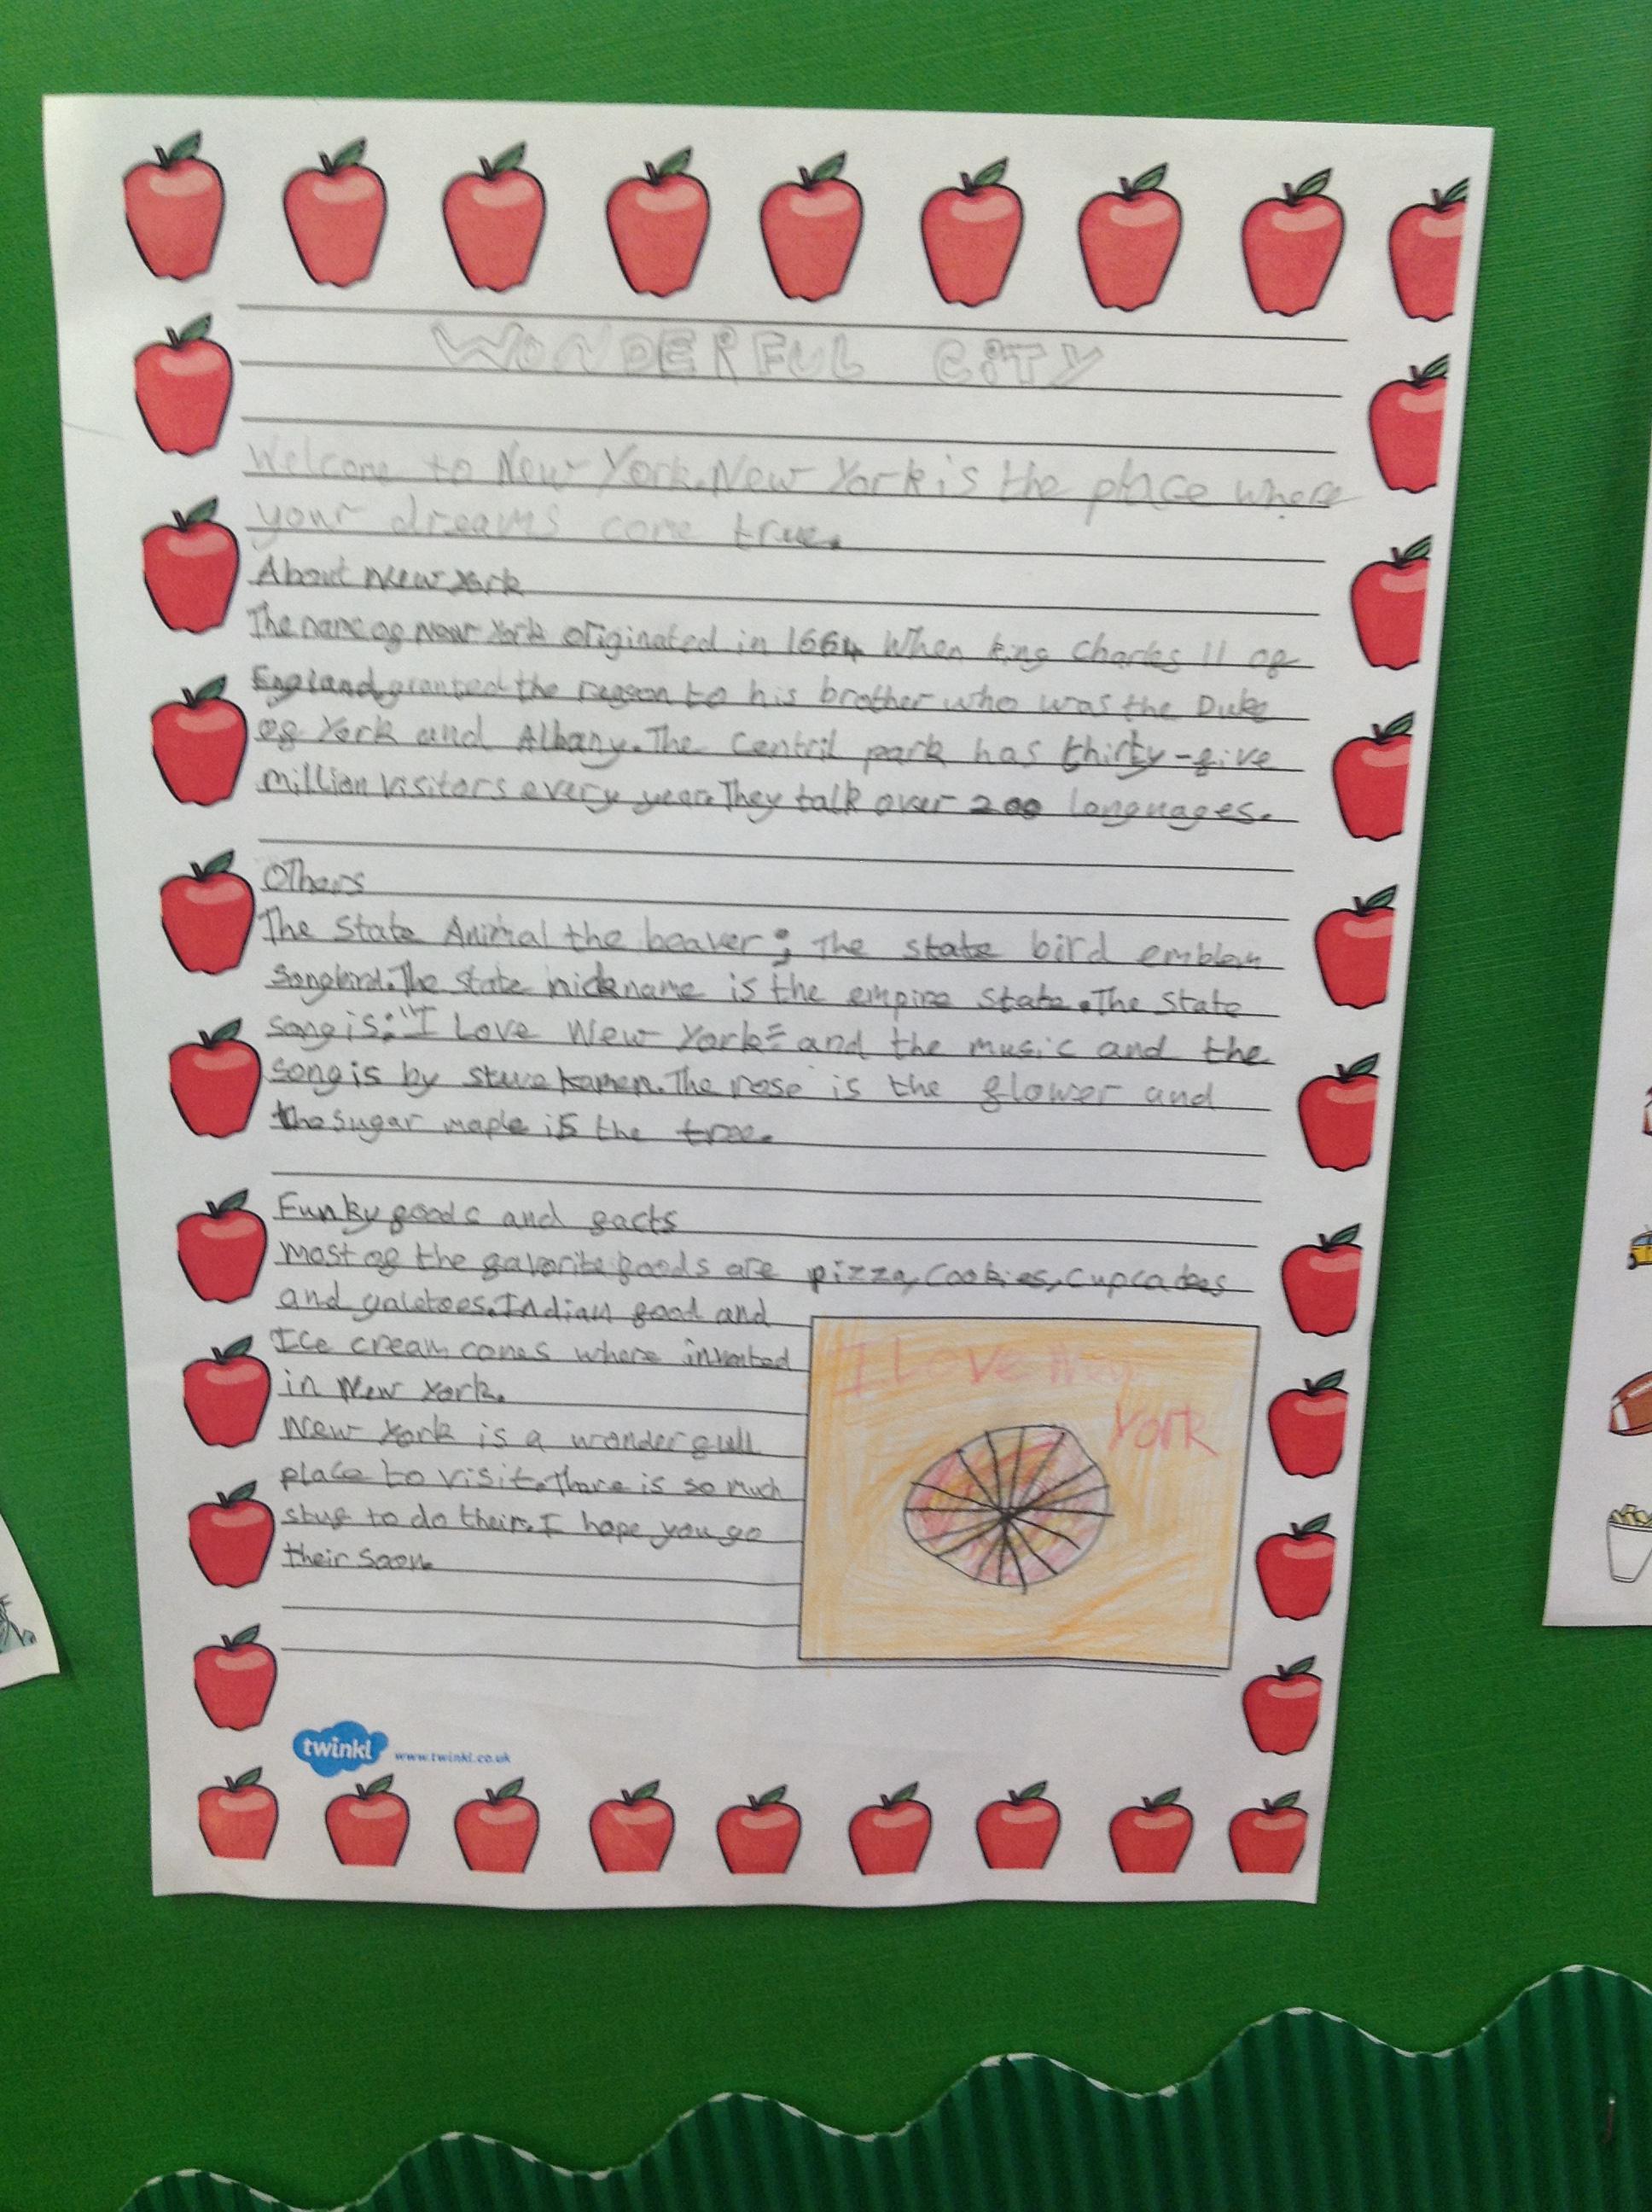 WONDERFUL CITY
Welcome to New York. New York is the place where
your dreams come true.
About New York
The name of New York originated in 1664 When king Charles II of
England granted the regeon to his brother who was the Duke
of York and Albany. The Centril park has thirty-five
million visitors every year. They talk over 200 languages.
Others
The State Animal the beaver; The state bird emblem
Songbird. The state nickname is the empire state. The State
song is: "I Love New York" and the music and the
song is by steve kamen. The rose is the flower and
the sugar maple is the tree.
Funky foods and facts
most of the favorite foods are pizza, Cookies, Cupcakes
and galetoes. Indian food and
Ice cream cones where invented
in New York.
New York is a wonderfull
place to visit. There is so much
stuf to do their. I hope you go
their soon.
I Love New
York
twinkl www.twinkl.co.uk